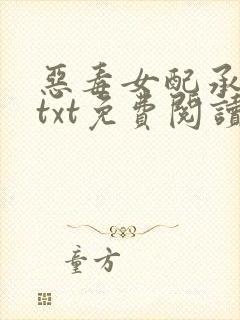 惡毒女配承
txt免費閱讀
童方